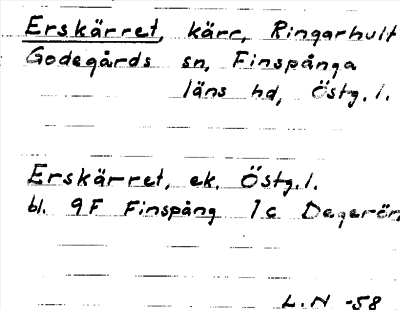 Erskärret, kärr, Ringarhult
Godegårds sn, Finspånga
läns hd, Östg. l.
Erskärret, ek. Östg. l.
bl. 9F Finspång 1c Degerön
L. N -58